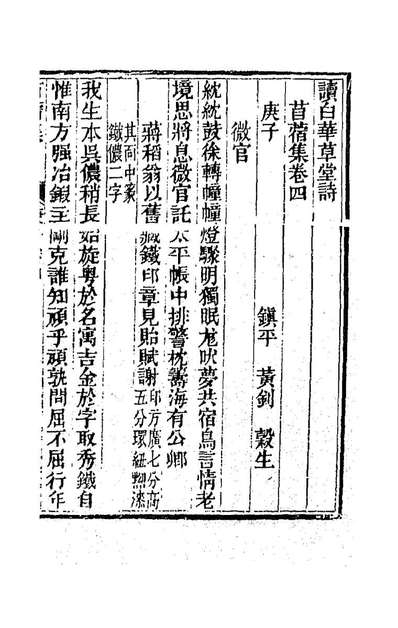 讀白華草堂詩
苜蓿集卷四
庚子　鎮平　黃釗　穀生
微官
紞紞鼓徐轉幢幢燈驟明獨眠尨吠夢共宿鳥言情老
境思將息微官託太平帳中排警枕籌海有公卿
蔣稻翁以舊藏鐵印章見貽賦謝
印方廣七分高
五分環紐黝漆
其面中篆
鐵儂二字
我生本吳儂稍長始旋粵於名寓吉金於字取秀鐵自
惟南方强冶鍛至剛克誰知頑乎頑孰問屈不屈行年